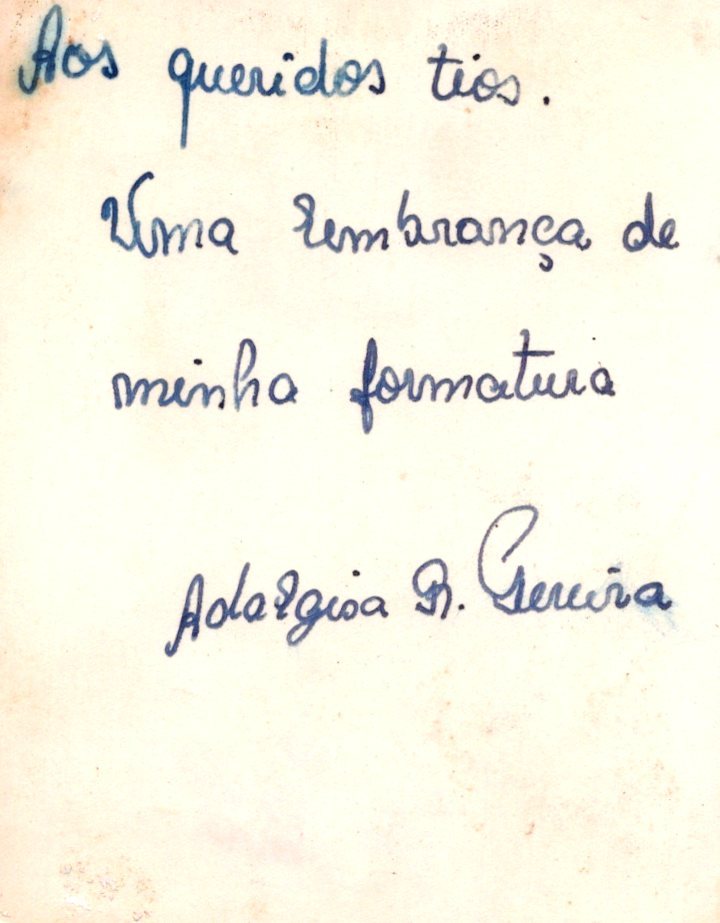 Aos queridos tios.
Uma lembrança de
minha formatura
Adalgisa R. Pereira